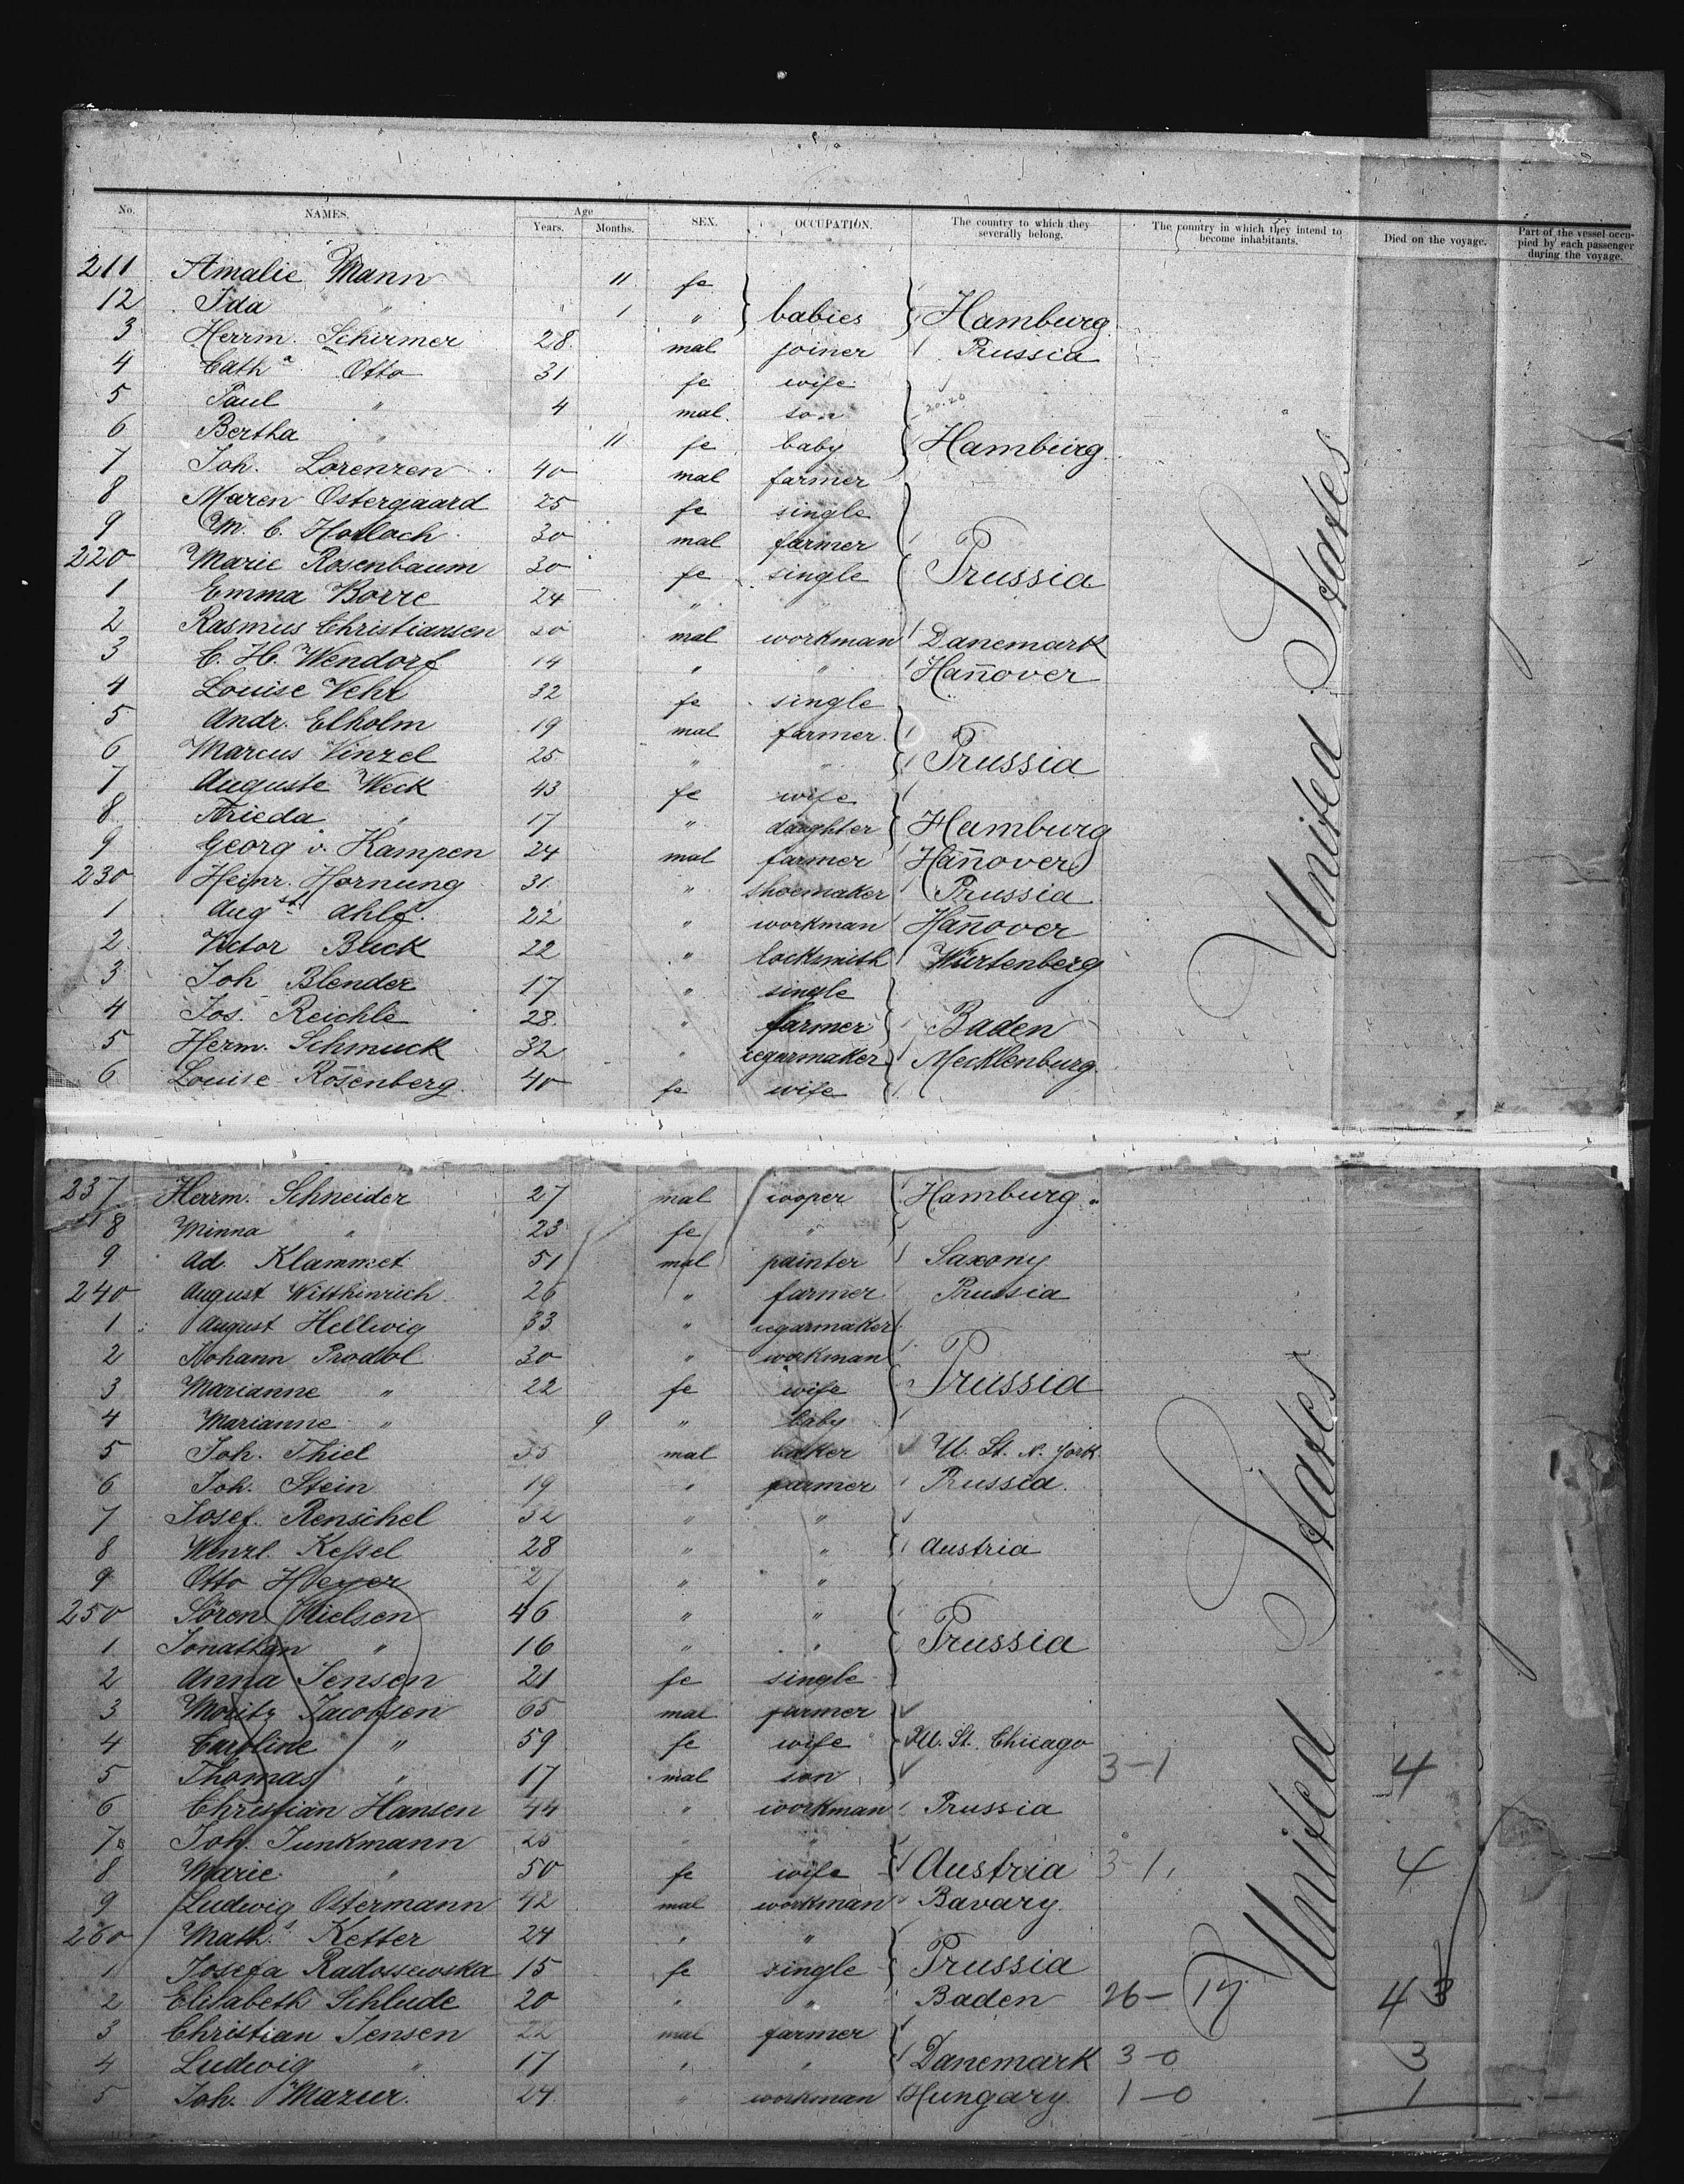 No. NAMES. Age Years. Months. SEX. OCCUPATION. The country to which they severally belong. The country in which they intend to become inhabitants. Died on the voyage. Part of the vessel occupied by each passenger during the voyage.
211 Amalie Mann 11 fe
12 Ida " 1 " babies Hamburg.
3 Herrm. Schirmer 28 mal joiner Prussia
4 Catha Otto 31 fe wife
5 Paul " 4 mal son 20.20
6 Bertha " 11 fe baby Hamburg.
7 Joh. Lorenzen 40 mal farmer
8 Maren Ostergaard 25 fe single
9 M. C. Hollach 30 mal farmer
220 Marie Rosenbaum 30 fe single Prussia
1 Emma Borre 24 " "
2 Rasmus Christiansen 20 mal workman Danemark
3 C. H. Wendorf 14 " " Hañover
4 Louise Vehr 32 fe single
5 Andr. Elholm 19 mal farmer
6 Marcus Vinzel 25 " " Prussia
7 Auguste Weck 43 fe wife
8 Frieda " 17 " daughter Hamburg
9 Georg v. Kampen 24 mal farmer Hañover
230 Heinr. Hornung 31 " shoemaker Prussia
1 Augst. Ahlf. 22 " workman Hañover
2 Victor Buck 22 " locksmith Würtenberg
3 Joh Blender 17 " single
4 Jos. Reichle 28 " farmer Baden
5 Herm. Schmuck 32 " cegarmaker Mecklenburg.
6 Louise Rosenberg. 40 fe wife
United States
237 Herrm. Schneider 27 mal cooper Hamburg.
8 Minna " 23 fe "
9 Ad. Klammet 51 mal painter Saxony
240 August Witthinrich 26 " farmer Prussia
1 August Hellwig 33 " cegarmaker
2 Johann Prodol 30 " workman
3 Marianne " 22 fe wife Prussia
4 Marianne " 9 " baby
5 Joh. Thiel 35 mal baker U. St. N. York.
6 Joh. Stein 19 " farmer Prussia.
7 Josef. Renschel 32 " "
8 Wenzl. Kessel 28 " " Austria
9 Otto Heyer " "
250 Sören Nielsen 46 " "
1 Jonathan " 16 " " Prussia
2 Anna Jensen 21 fe single
3 Moritz Jacobsen 65 mal farmer
4 Caroline " 59 fe wife U. St. Chicago
5 Thomas " 17 mal son 3-1 4
6 Christian Hansen 44 " workman Prussia
7 Joh. Junkmann 25 " "
8 Marie " 50 fe wife Austria 3-1 4
9 Ludwig Ostermann 42 mal workman Bavary.
260 Maths. Ketter 24 " "
1 Josefa Radossewska 15 fe single Prussia
2 Elisabeth Schlude 20 " " Baden 26- 17 43
3 Christian Jensen 22 mal farmer
4 Ludwig " 17 " " Danemark 3-0 3
5 Joh. Mazur. 24 " workman Hungary. 1-0 1
United States